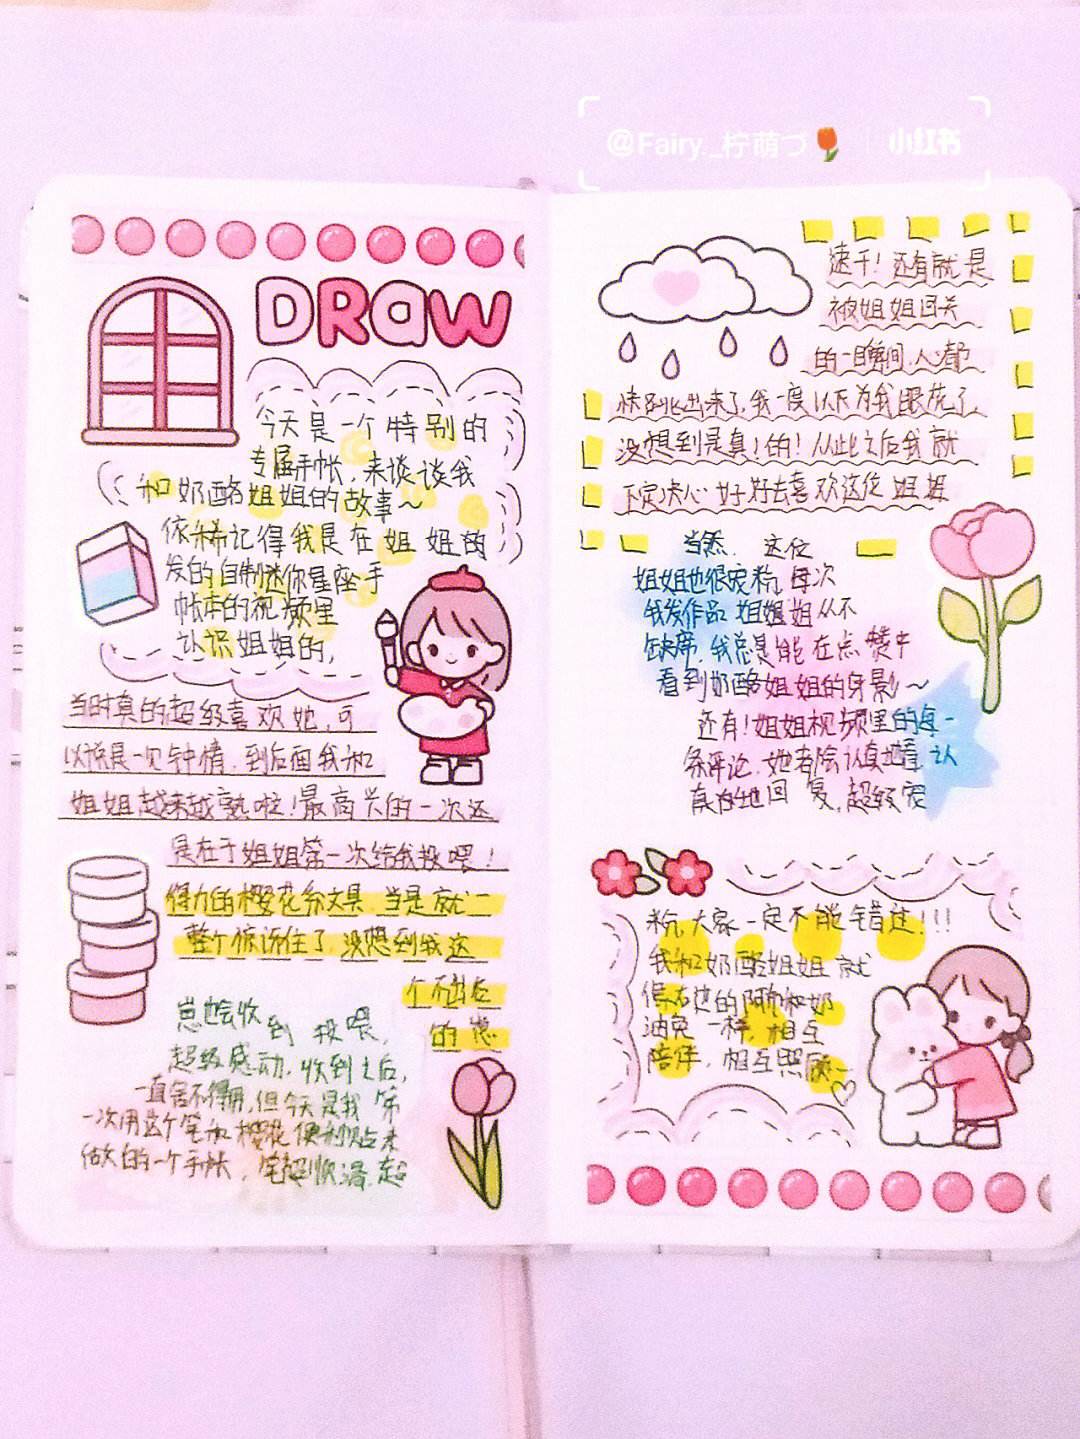 @Fairy._柠萌づ 小红书
DRaW
今天是一个特别的
专属手帐，来谈谈我
和奶酪姐姐的故事~
依稀记得我是在姐姐的
发的自制迷你星座手
帐本的视频里
认识姐姐的，
当时真的超级喜欢她，可
以说是一见钟情，到后面我和
姐姐越来越熟啦！最高兴的一次还
是在于姐姐第一次给我投喂！
得力的樱花系文具，当是就一
整个惊讶住了，没想到我这
个不
的
总会收到投喂，
超级感动，收到之后，
一直舍不得用，但今天是我第
一次用这个笔和樱花便利贴来
做的一个手帐，笔超顺滑，超
速干！还有就是
被姐姐回关
的一瞬间，人都
快别出来了，我一度以下为我眼花了，
没想到是真的！从此之后我就
下定决心好好去喜欢这位姐姐
当然，这位
姐姐也很宠粉，每次
我发作品，姐姐姐从不
缺席，我总是能在点赞中
看到奶酪姐姐的身影~
还有！姐姐视频里的每一
条评论，她都会认真地看，认
真的地回复，超级宠
粉，大家一定不能错过！！！
我和奶酪姐姐就
像右边的阿和奶
油兔一样，相互
陪伴，相互照顾~